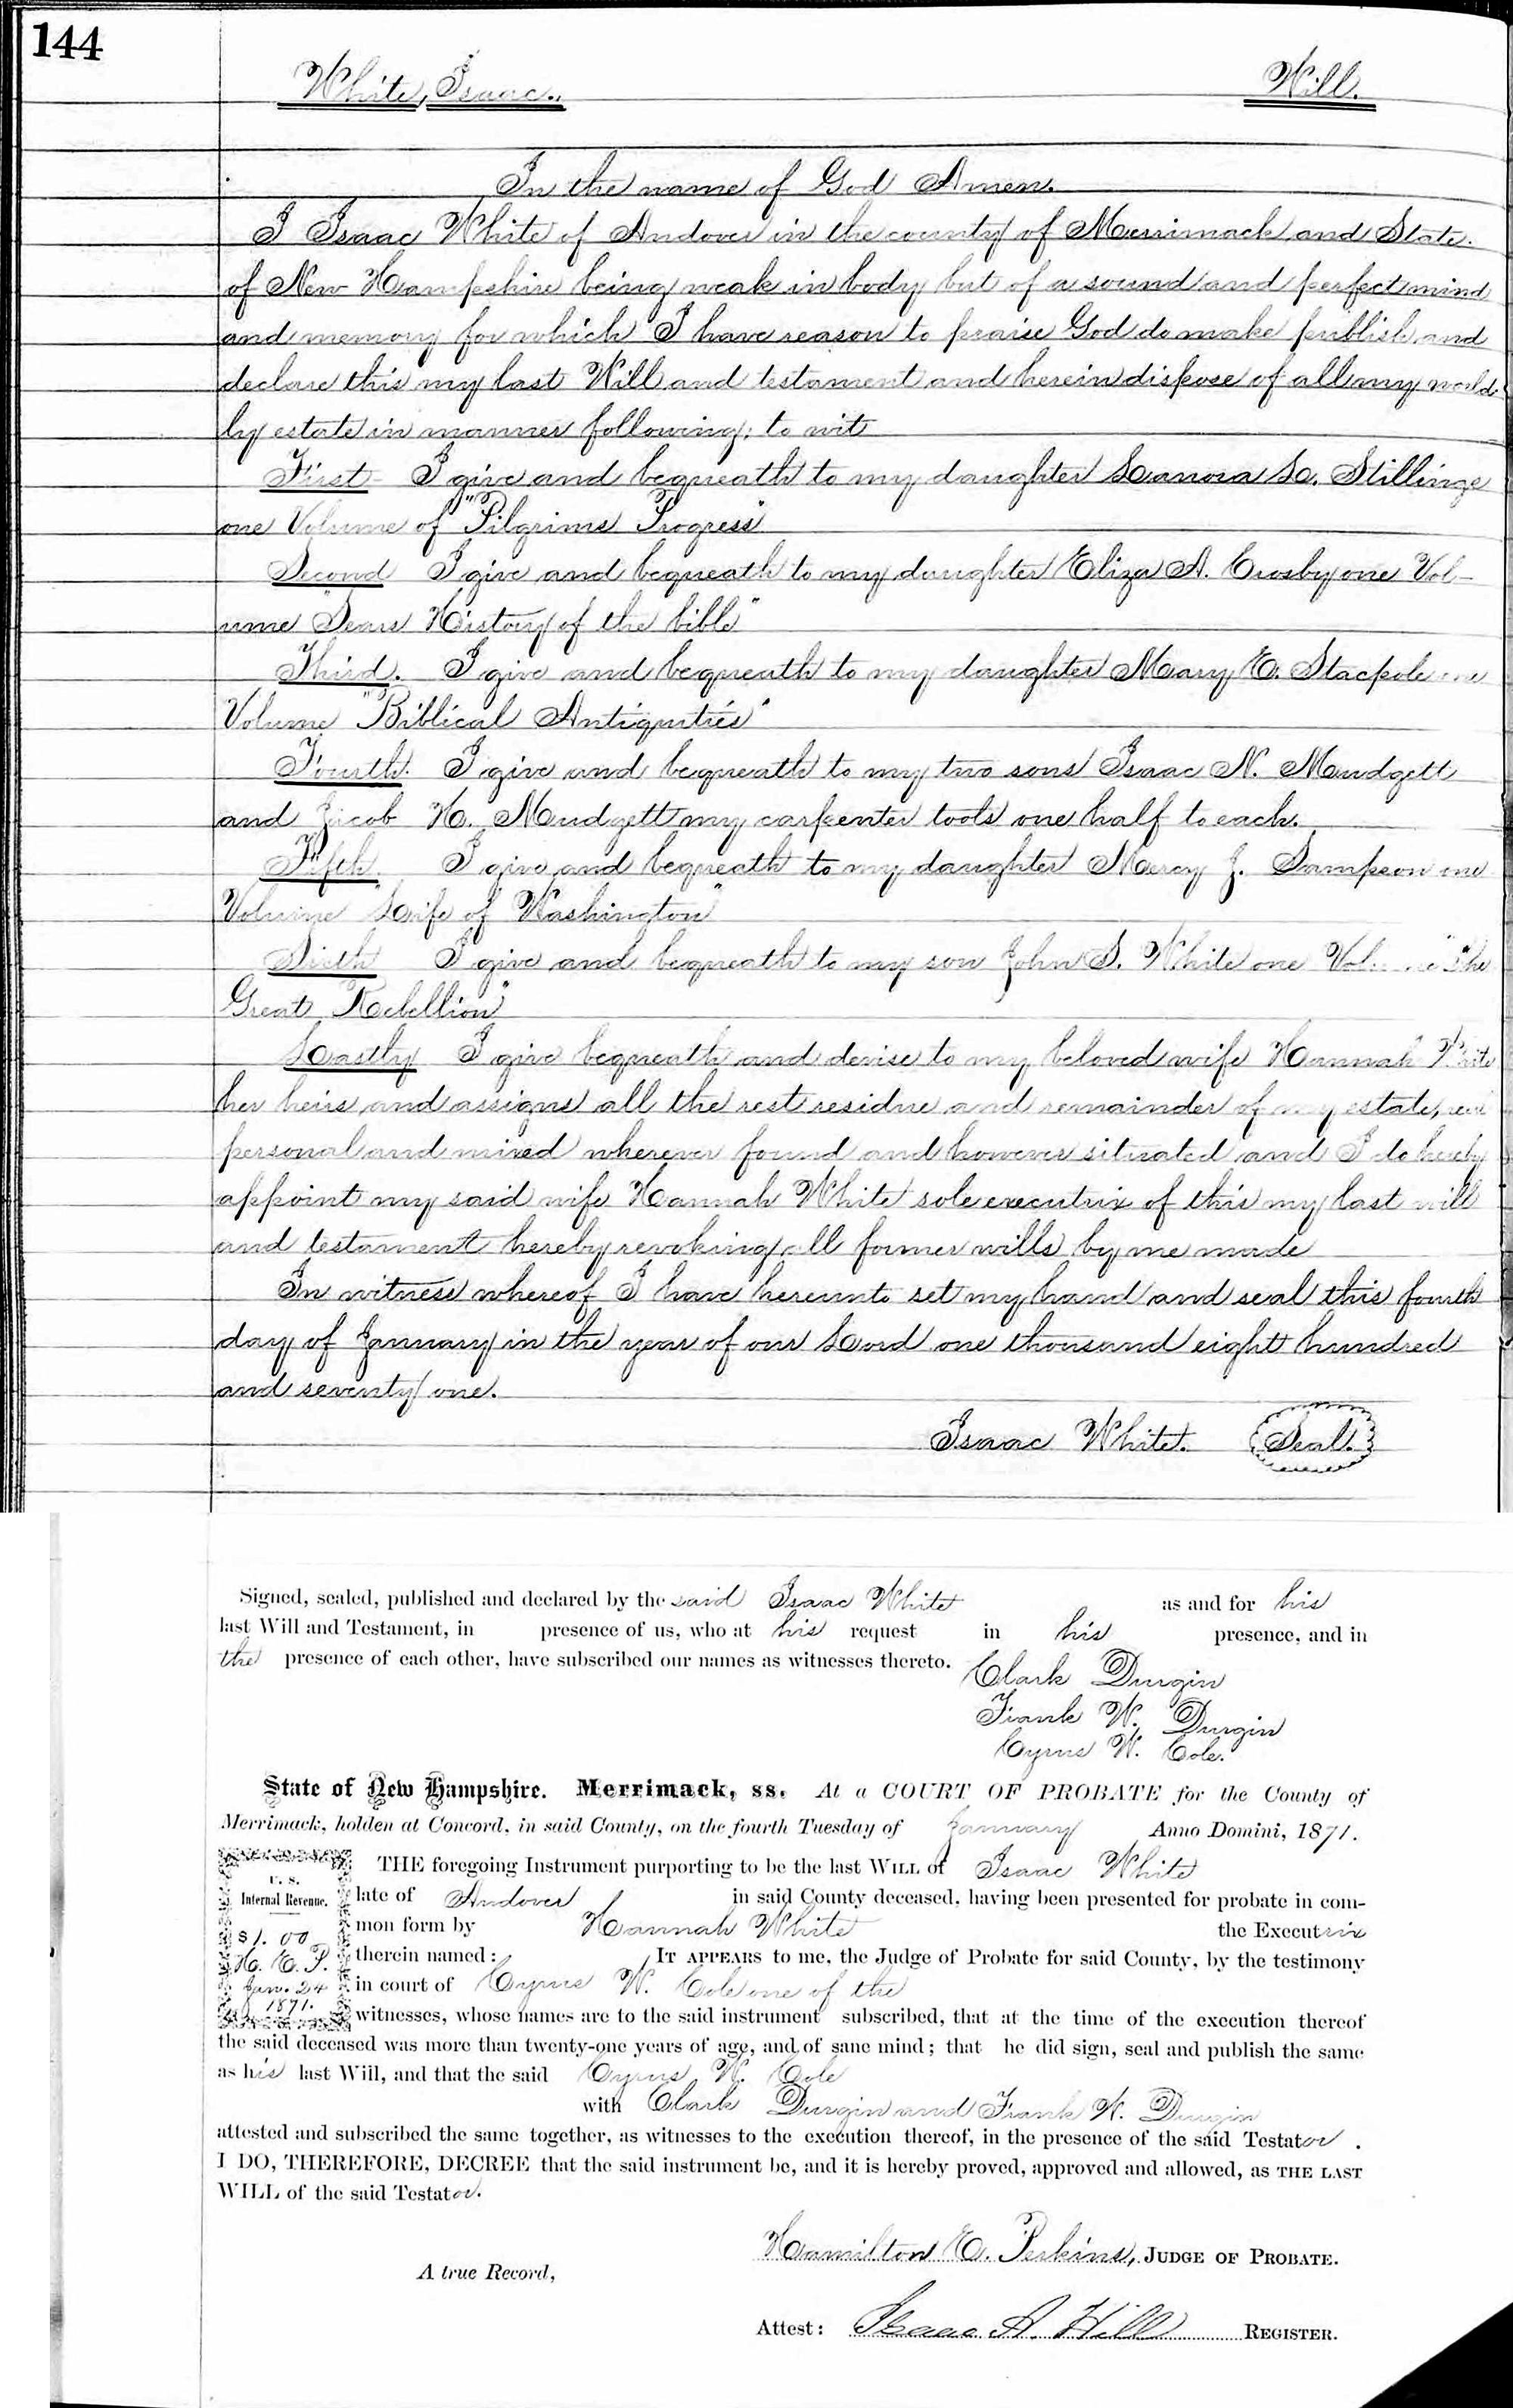 144
White, Isaac. Will.
In the name of God Amen.
I Isaac White of Andover in the county of Merrimack and State
of New Hampshire being weak in body but of a sound and perfect mind
and memory for which I have reason to praise God do make publish and
declare this my last Will and testament and herein dispose of all my world
ly estate in manner following; to wit
First I give and bequeath to my daughter Lanora L. Stillings
one Volume of "Pilgrims Progress"
Second I give and bequeath to my daughter Eliza A. Crosby one Vol-
ume "Sears History of the bible"
Third. I give and bequeath to my daughter Mary E. Stackpole one
Volume "Biblical Antiquities"
Fourth. I give and bequeath to my two sons Isaac N. Mudgett
and Jacob H. Mudgett my carpenter tools one half to each.
Fifth I give and bequeath to my daughter Mercy J. Sampson one
Volume "Life of Washington"
Sixth I give and bequeath to my son John S. White one Volume "The
Great Rebellion"
Lastly I give bequeath and devise to my beloved wife Hannah White
her heirs and assigns all the rest residue and remainder of my estate, real
personal and mixed wherever found and however situated and I do hereby
appoint my said wife Hannah White sole executrix of this my last will
and testament hereby revoking all former wills by me made
In witness whereof I have hereunto set my hand and seal this fourth
day of January in the year of our Lord one thousand eight hundred
and seventy one.
Isaac White. Seal.
Signed, sealed, published and declared by the said Isaac White as and for his
last Will and Testament, in presence of us, who at his request in his presence, and in
the presence of each other, have subscribed our names as witnesses thereto.
Clark Durgin
Frank W. Durgin
Cyrus W. Cole.
State of New Hampshire. Merrimack, ss. At a COURT OF PROBATE for the County of
Merrimack, holden at Concord, in said County, on the fourth Tuesday of January Anno Domini, 1871.
THE foregoing Instrument purporting to be the last WILL of Isaac White
U. S.
Internal Revenue.
$1.00
H. E. P.
Jan. 24
1871.
late of Andover in said County deceased, having been presented for probate in com-
mon form by Hannah White the Executrix
therein named: IT APPEARS to me, the Judge of Probate for said County, by the testimony
in court of Cyrus W. Cole one of the
witnesses, whose names are to the said instrument subscribed, that at the time of the execution thereof
the said deceased was more than twenty-one years of age, and of sane mind; that he did sign, seal and publish the same
as his last Will, and that the said Cyrus W. Cole
with Clark Durgin and Frank W. Durgin
attested and subscribed the same together, as witnesses to the execution thereof, in the presence of the said Testator.
I DO, THEREFORE, DECREE that the said instrument be, and it is hereby proved, approved and allowed, as THE LAST
WILL of the said Testator.
Hamilton E. Perkins, JUDGE OF PROBATE.
A true Record,
Attest: Isaac A. Hill REGISTER.